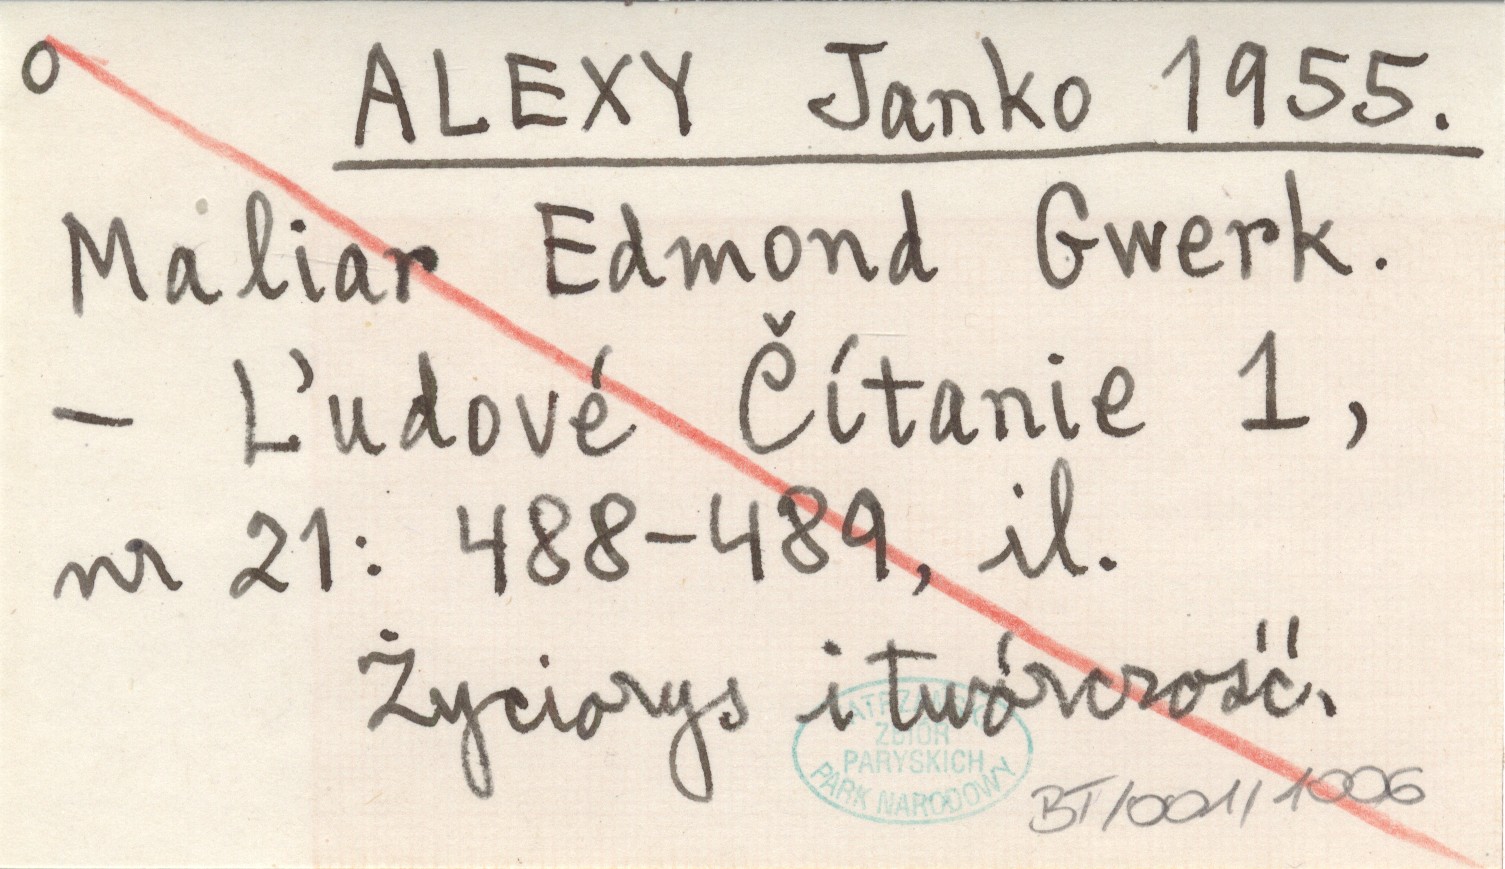 o ALEXY Janko 1955.
Maliar Edmond Gwerk.
- Ľudové Čítanie 1,
nr 21: 488-489, il.
Życiorys i twórczość.
TATRZAŃSKI
ZBIÓR
PARYSKICH
PARK NARODOWY
BT/001/1006